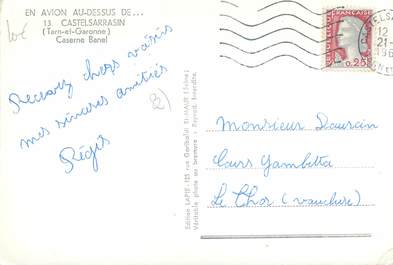 EN AVION AU-DESSUS DE...
13. CASTELSARRASIN
(Tarn-et-Garonne)
Caserne Banel
Recevez chers voisins
mes sincères amitiés
Régis
Edition LAPIE - 125 rue Garibaldi St-MAUR (Seine)
Véritable photo au bromure - Reprod. Interdite.
FRANÇAISE
0,25
12
21-
196
Monsieur Daurain
Cours Gambetta
Le Thor (vaucluse)